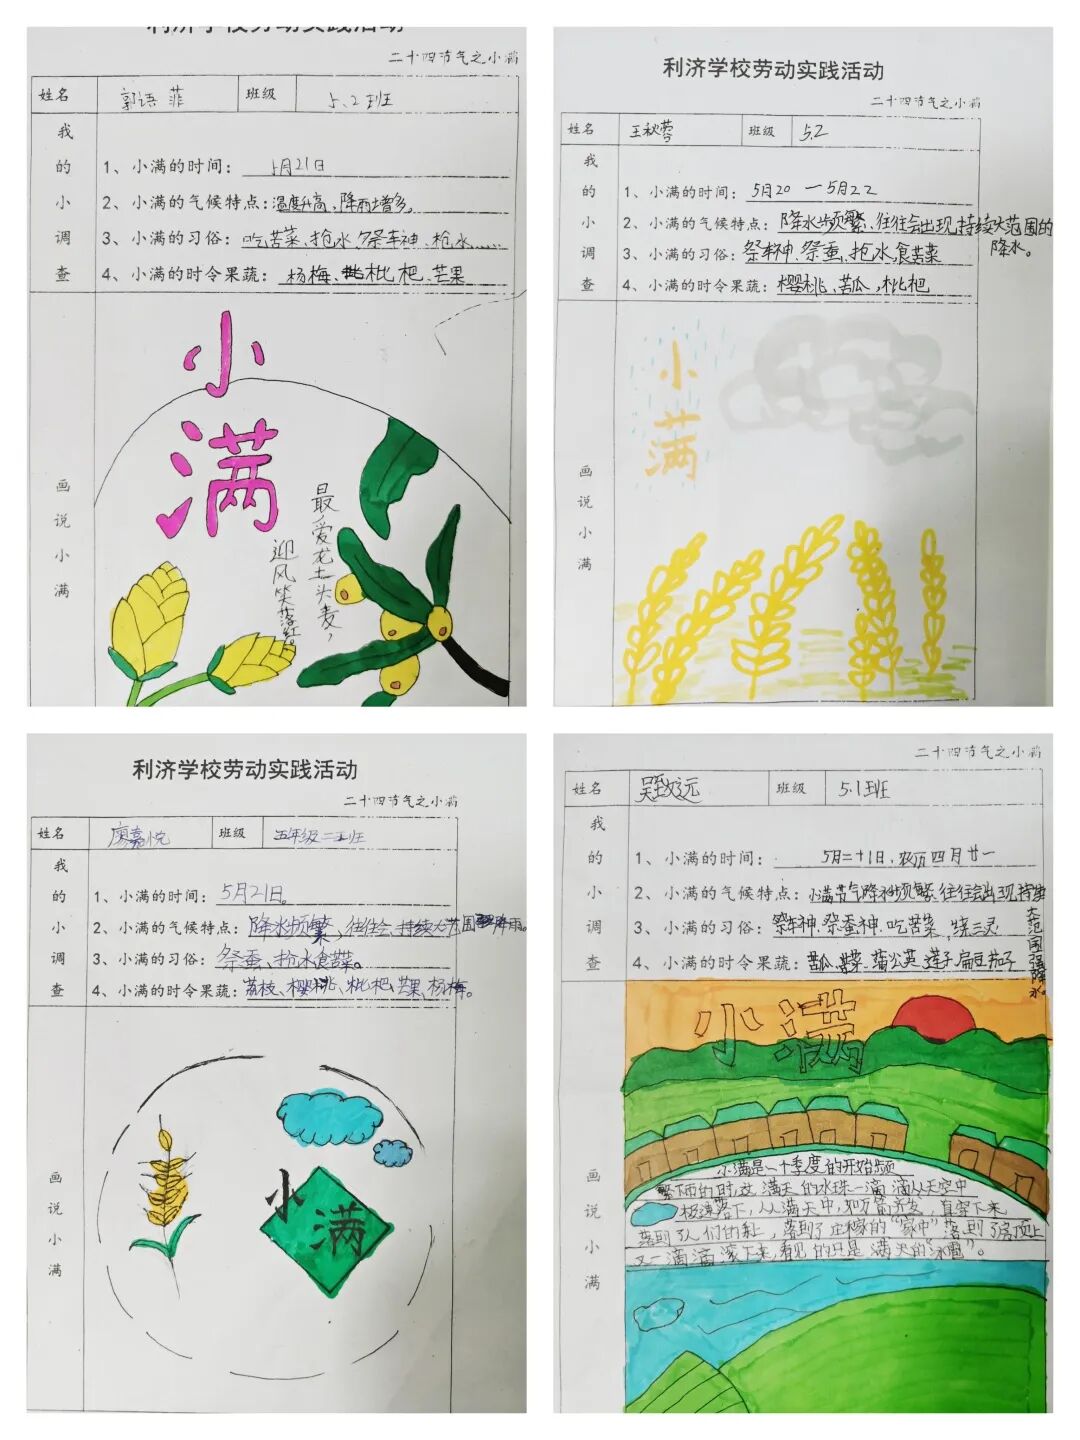 利济学校劳动实践活动
二十四节气之小满
姓名 郭语菲 班级 5.2班
我的小调查
1、小满的时间：5月21日
2、小满的气候特点：温度升高、降雨增多。
3、小满的习俗：吃苦菜、抢水、祭车神、枪水……
4、小满的时令果蔬：杨梅、枇杷、芒果
画说小满
小满
最爱垄头麦，
迎风笑落红
利济学校劳动实践活动
二十四节气之小满
姓名 王秋蓉 班级 5.2
我的小调查
1、小满的时间：5月20—5月22
2、小满的气候特点：降水频繁、往往会出现持续大范围的
降水。
3、小满的习俗：祭车神、祭蚕、抢水、食苦菜
4、小满的时令果蔬：樱桃、苦瓜，枇杷
画说小满
小满
利济学校劳动实践活动
二十四节气之小满
姓名 廖嘉悦 班级 五年级二班
我的小调查
1、小满的时间：5月21日。
2、小满的气候特点：降水频繁，往往会持续大范围降雨。
3、小满的习俗：祭蚕、抢水食苦菜。
4、小满的时令果蔬：荔枝、樱桃、枇杷、芒果、杨梅。
画说小满
小满
二十四节气之小满
姓名 吴致远 班级 5.1班
我的小调查
1、小满的时间：5月二十1日，农历四月廿一
2、小满的气候特点：小满节气降水频繁、往往会出现持续
大范围强降水。
3、小满的习俗：祭车神、祭蚕神、吃苦菜，
4、小满的时令果蔬：苦瓜、苦菜、蒲公英、莲子、扁豆、茄子
画说小满
小满
小满是一个季度的开始频
繁雨的时，这满天的水珠一滴滴从天空中
极速落下，从满天中，万箭齐发，直穿下来
落到了人们的，落到了庄稼的“家中”落到了房顶上
又一滴滴滚下来，看见的只是满天的“冰雹”。